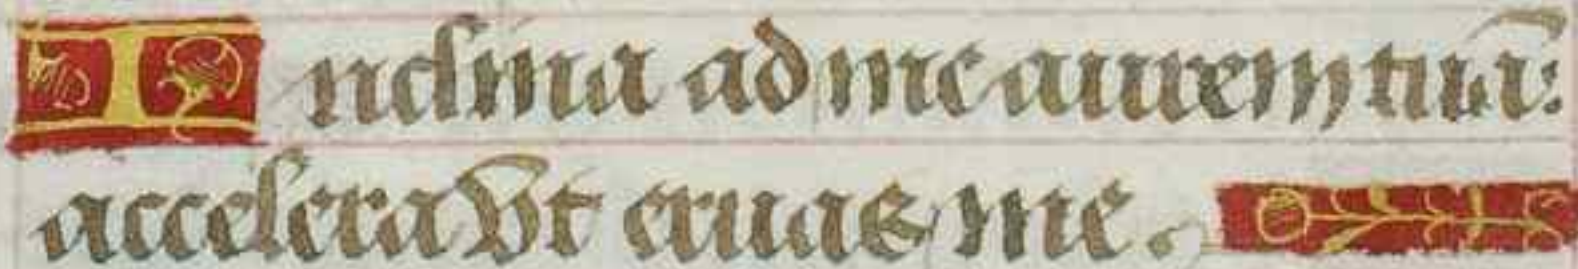 Inclina ad me aurem tuā:
accelera vt eruas me.